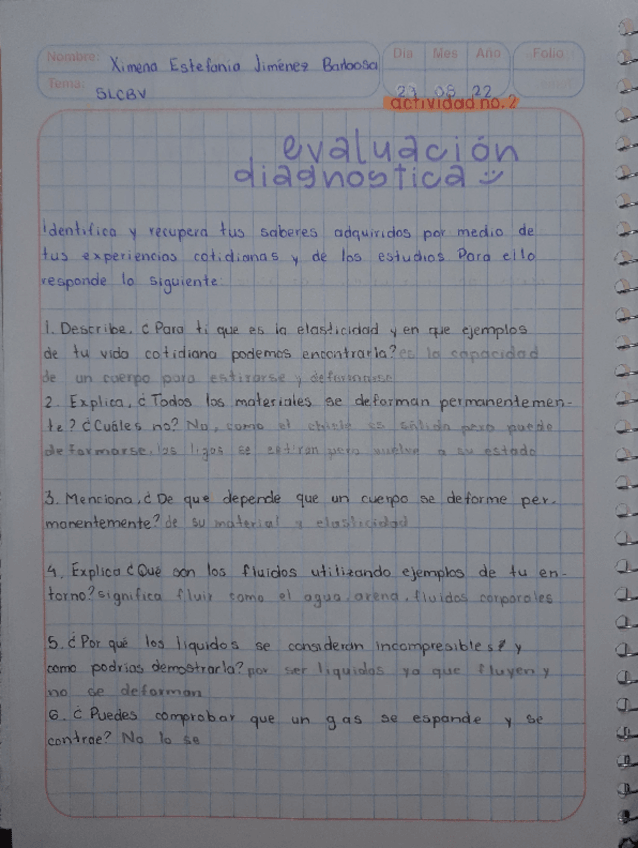 Nombre: Ximena Estefania Jiménez Barbosa
Día Mes Año Folio
Tema: SLCBV
29 08 22
actividad no. 2
evaluación
diagnostica
Identifica y recupera tus saberes adquiridos por medio de
tus experiencias cotidianas y de los estudios Para ello
responde lo siguiente:
1. Describe. ¿Para ti que es la elasticidad y en que ejemplos
de tu vida cotidiana podemos encontrarla? es la capacidad
de un cuerpo para estirarse y deformarse
2. Explica, ¿Todos los materiales se deforman permanentemen-
te? ¿Cuáles no? No, como el chicle es sólida pero puede
deformarse, las ligas se estiran pero vuelve a su estado
3. Menciona, ¿De que depende que un cuerpo se deforme per-
manentemente? de su material y elasticidad
4. Explica ¿Qué son los fluidos utilizando ejemplos de tu en-
torno? significa fluir como el agua, arena, fluidos corporales
5. ¿Por qué los liquidos se consideran incompresibles? y
como podrias demostrarla? por ser liquidos ya que fluyen y
no se deforman
6. ¿Puedes comprobar que un gas se espande y se
contrae? No lo se